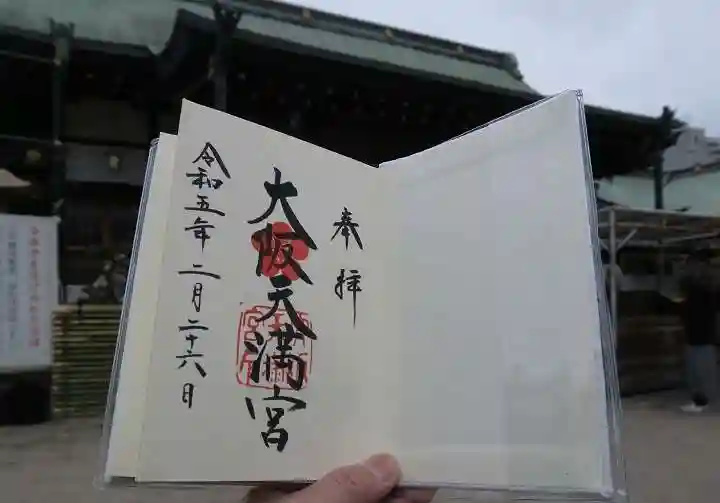 奉拝
大阪天満宮
令和五年二月二十六日